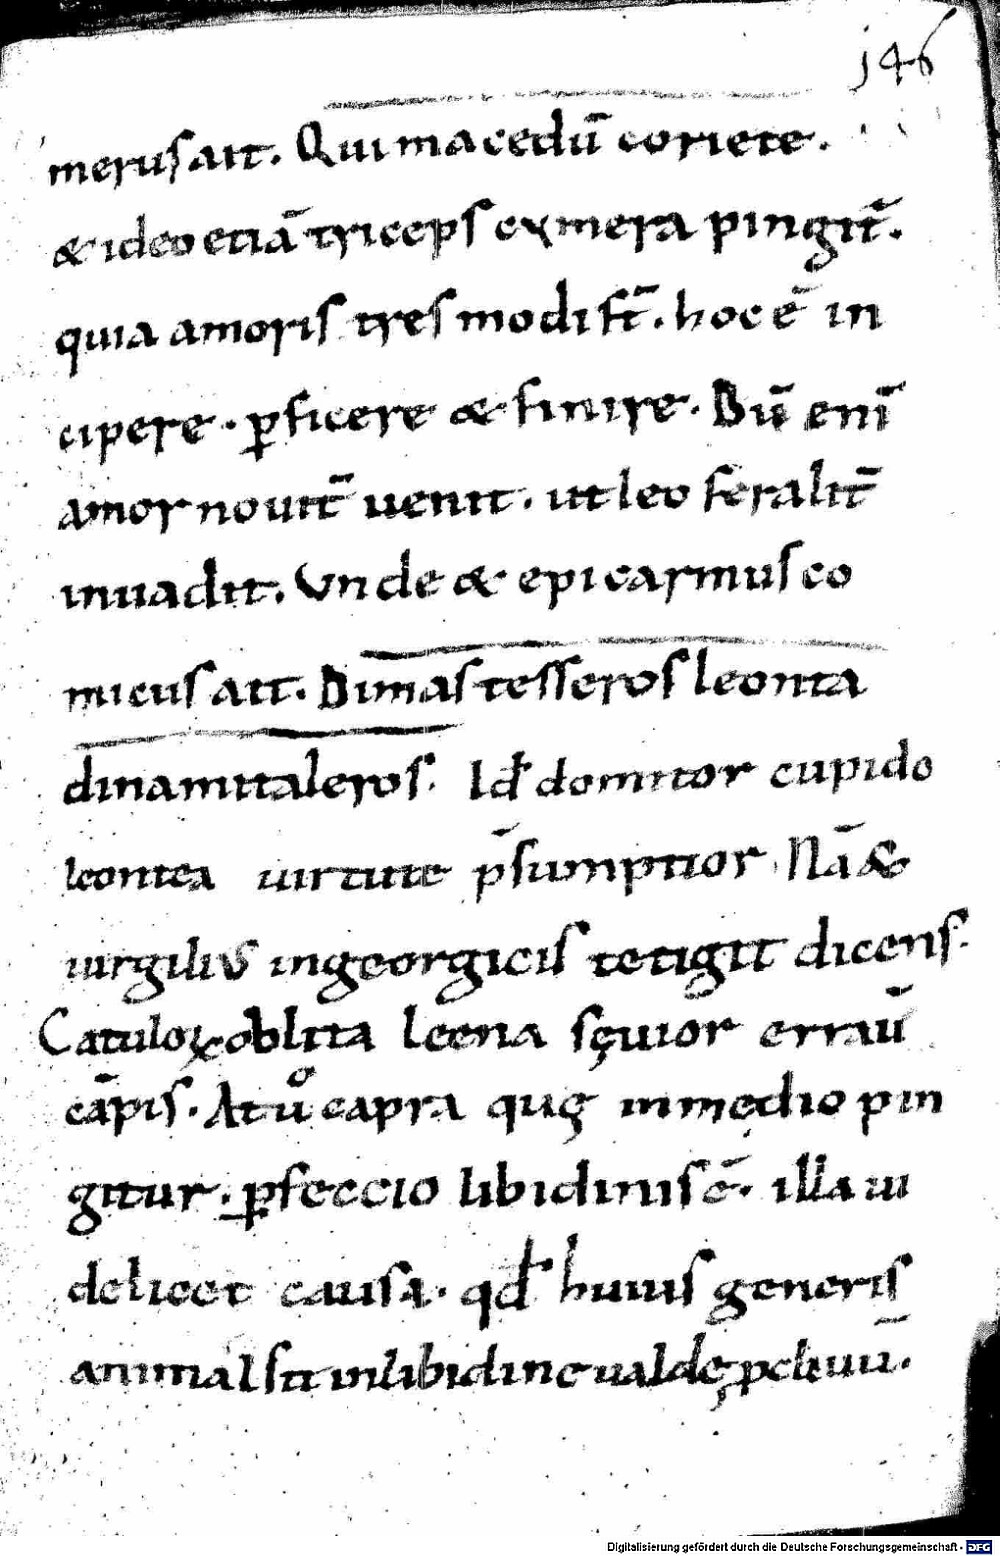 146
merus ait. Qui macedū coriete.
& ideo etiā triceps exmera pingit̄.
quia amoris tres modi st̄. hoc ē in
cipere. ꝑficere & finire. Dū enī
amor nouit̄ uenit. ut leo feralit̄
inuadit. Vnde & epicarmus co
micus ait. Dimas tesseros leonta
dinamitaleros. Id ̄ domitor cupido
leontea uirtute p̄sumptior Nā &
uirgilius ingeorgicis tetigit dicens.
Catuloꝝ oblita leena sęuior errau̅
cāpis. At uͦ capra quę in medio pin
gitur. ꝑfeccio libidinis ē. illa ui
delicet causa. qd ̄ huius generis
animal sit in libidine ualdę ꝓcliuū.
Digitalisierung gefördert durch die Deutsche Forschungsgemeinschaft - DFG